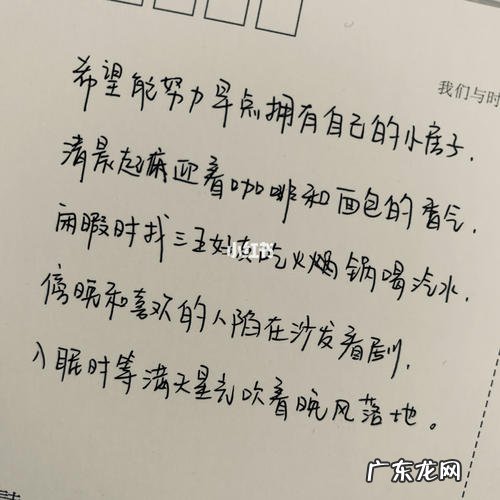 我们与时
希望能努力早点拥有自己的小房子.
清晨起床迎着咖啡和面包的香气.
闲暇时找三五好友吃火锅喝汽水.
傍晚和喜欢的人陷在沙发看剧.
入眠时等满天星光吹着晚风落地。
小红书
广东龙网